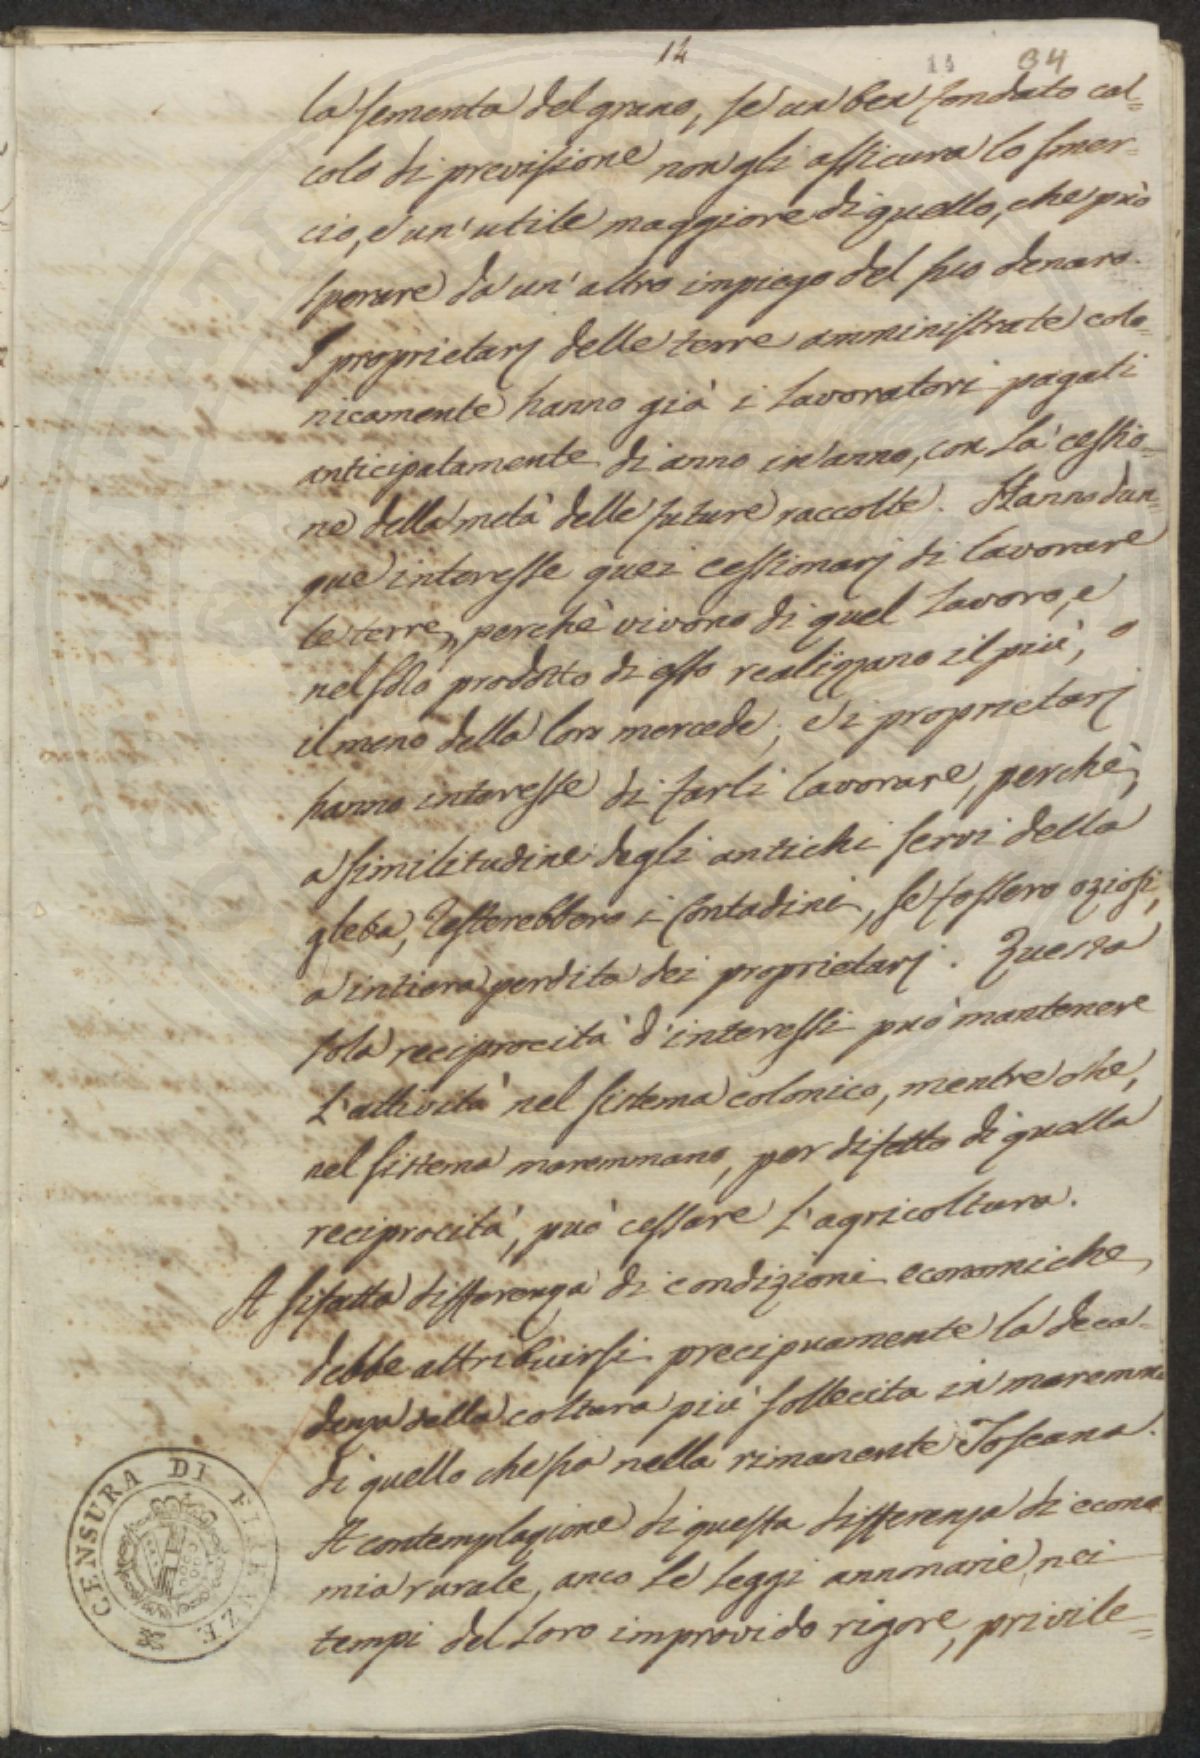 14
14
34
la sementa del grano, se un ben fondato cal=
colo di previsione non gli assicura lo smer=
cio, e un' utile maggiore di quello, che può
sperare da un' altro impiego del suo denaro.
I proprietarj delle terre amministrate colo=
nicamente hanno già i lavoratori pagati
anticipatamente di anno in anno, con la cessio=
ne della metà delle future raccolte. Hanno dun=
que interesse quei cessionarj di lavorare
le terre, perchè vivono di quel lavoro, e
nel solo prodotto di esso realizzano il più, o
il meno della loro mercede; e i proprietarj
hanno interesse di farli lavorare, perchè,
a similitudine degli antichi servi della
gleba, resterebbero i Contadini, se fossero oziosi,
a intiera perdita dei proprietarj. Questa
sola reciprocità d' interessi può mantenere
l' attività nel sistema colonico, mentre che,
nel sistema maremmano, per difetto di quella
reciprocità, può cessare l' agricoltura.
A sifatta differenza di condizioni economiche
debbe attribuirsi precipuamente la deca=
denza della coltura più sollecita in maremma
di quello che sia nella rimanente Toscana.
A contemplazione di questa differenza di econo
mia rurale, anco le leggi annonarie nei
tempi del loro improvido rigore, privile=
CENSURA DI FIRENZE